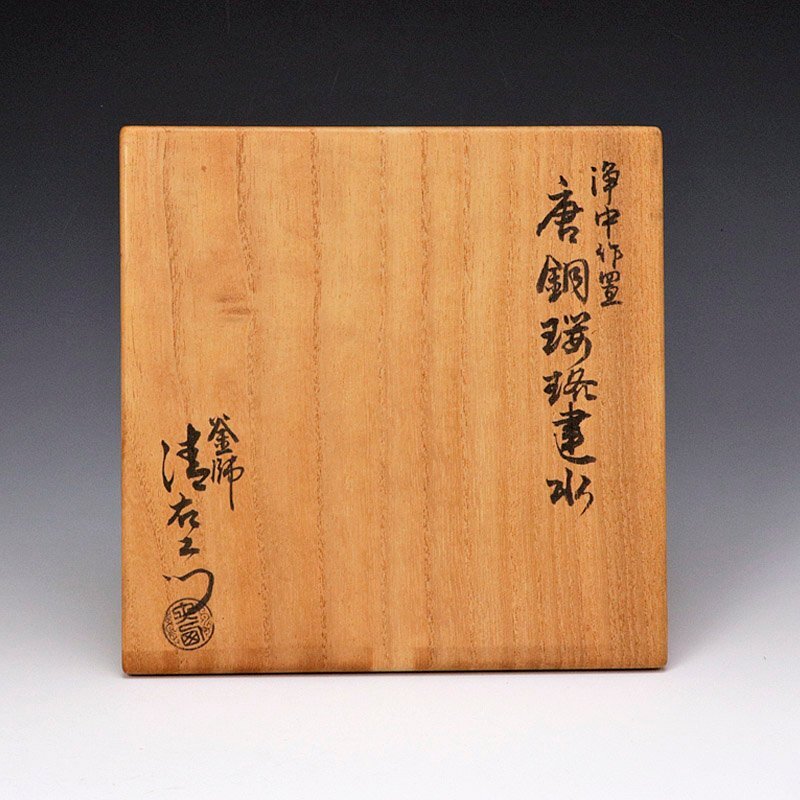 浄中作置
唐銅瓔珞建水
釜師
清右エ門